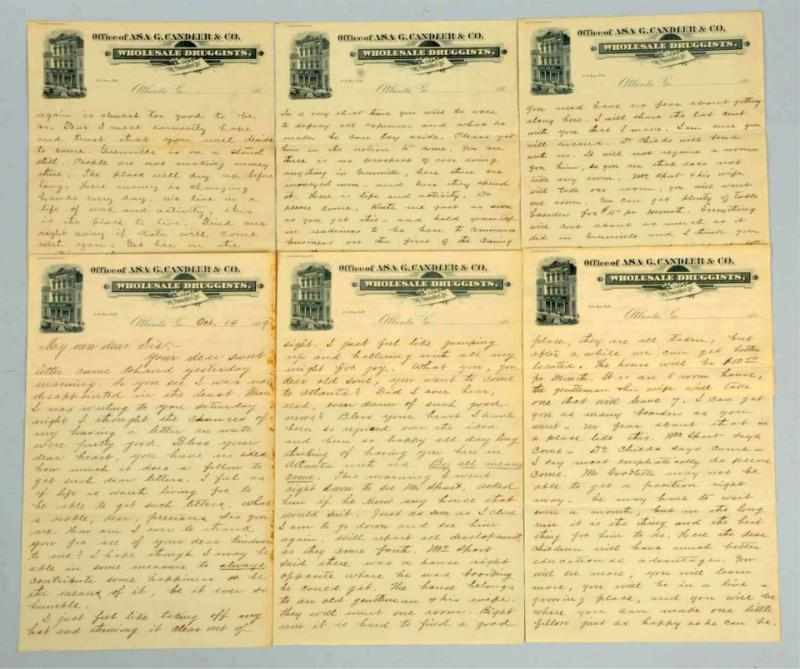 Office of ASA G. CANDLER & CO.
WHOLESALE DRUGGISTS,
Atlanta, Ga. 18
again is almost too good to be
so. Dear I most earnestly hope
and trust that you will decide
to come. Greenville is on a stand
still. People are not making money
there. The place will dry up before
long. Here money is changing
hands every day. We live in a
life of work and activity, this
is the place to live.
right away
with you.
Office of ASA G. CANDLER & CO.
WHOLESALE DRUGGISTS,
Atlanta, Ga. 18
In a very short time you will be able
to defray all expenses and what he
makes he can lay aside. Please get
him in the notion to come. You see
there is no prospect of ever doing
anything in Greenville, here there are
moneyed men, and here they spend
it. Here is life and activity. Do
please come. Write me just as soon
as you get this and hold yourself
in readiness to be here to commence
business on the first of the
Office of ASA G. CANDLER & CO.
WHOLESALE DRUGGISTS,
Atlanta, Ga. 18
You need have no fear about getting
along here. I will share the last cent
with you that I make. I am sure you
will succeed. Dr Childs will board
with us. It will not require a room
for him, so you see that does not
take any room. Mr Short & his wife
will take one room, you will want
one room. You can get plenty of table
boarders for per month. Everything
will cost about as much as it
did in Greenville and I think you
Office of ASA G. CANDLER & CO.
WHOLESALE DRUGGISTS,
Atlanta, Ga. Oct. 14 189
My own dear Sis;-
Your dear sweet
letter came to hand yesterday
morning. So you see I was not
disappointed in the least. When
I was writing to you Saturday
night I thought the chances of
my having a letter en route
were pretty good. Bless your
dear heart, you have no idea
how much it does a fellow to
get such dear letters. I feel as
if life is worth living for to
be able to get such letters. What
a noble, dear, precious sis you
are. How am I ever to thank
you for all of your dear kindness
to me? I hope though I may be
able in some measure to always
contribute some happiness or be
the means of it, be it ever so
humble.
I just feel like taking off my
hat and throwing it clear out of
Office of ASA G. CANDLER & CO.
WHOLESALE DRUGGISTS,
Atlanta, Ga. 18
sight. I just feel like jumping
up and hollering with all my
might for joy. What you, you
dear old soul, you want to come
to Atlanta? Did I ever hear,
read, or ever dream of such good
news? Bless your heart I have
been so rejoiced over the idea
and been so happy all day long
thinking of having you here in
Atlanta with me. By all means
come. This morning I went
right down to see Mr Short, asked
him if he knew any house that
would suit. Just as soon as I close
I am to go down and see him
again. Will report all developments
as they come forth. Mr Short
said there was a house right
opposite where he was boarding
he could get. The house belongs
to an old gentleman & his wife.
they will want one room. Right
now it is hard to find a good
Office of ASA G. CANDLER & CO.
WHOLESALE DRUGGISTS,
Atlanta, Ga. 18
place, they are all taken, but
after a while we can get better
located. The house will be
per Month. It is an 8 room house,
the gentleman & his wife will take
one that will leave 7. I can get
you as many boarders as you
want. No fear about that in
a place like this. Mr Short says
Come. Dr Childs says Come &
I say most emphatically do please
Come. Mr may not be
able to get a position right
away. He may have to wait
over a month, but in the long
run it is the thing and the best
thing for him to do. Here the dear
children will have much better
educational advantages. You
will see more, you will learn
more, you will be in a live &
growing place, and you will be
where you can make one little
fellow just as happy as he can be.